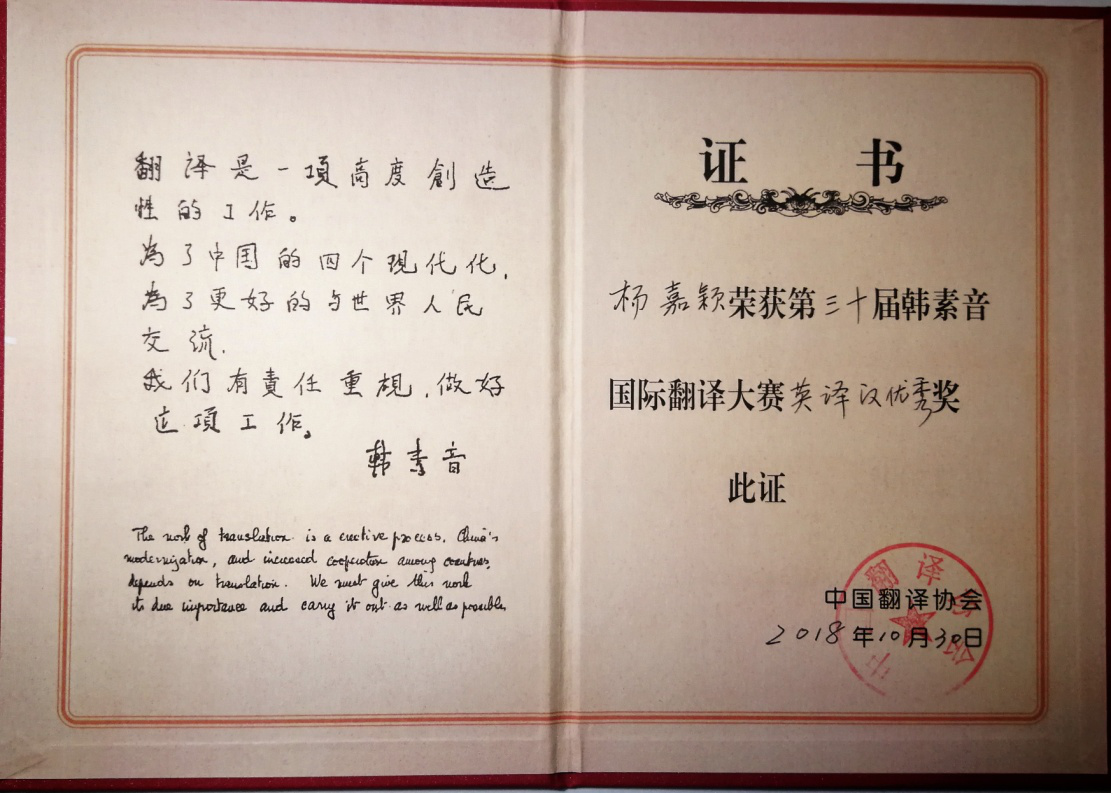 翻译是一項高度創造
性的工作。
為了中国的四个現代化,
為了更好的与世界人民
交流.
我们有責任重視,做好
这項工作。
韩素音
The work of translation is a creative process. China's
modernization, and increased cooperation among countries,
depends on translation. We must give this work
its due importance and carry it out as well as possible.
证书
杨嘉颖荣获第三十届韩素音
国际翻译大赛英译汉优秀奖
此证
中国翻译协会
2018年10月30日
中国翻译协会